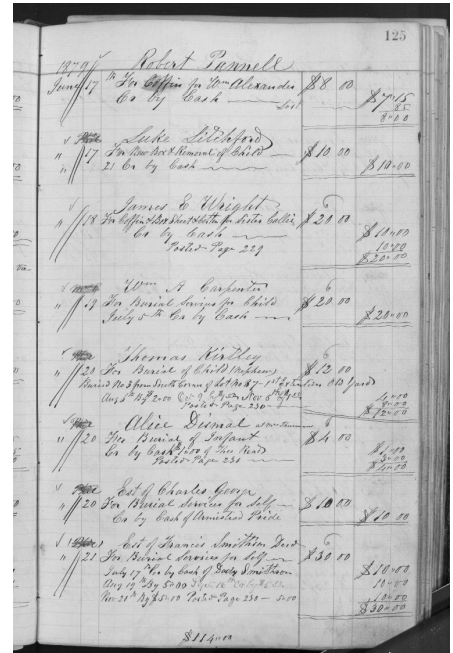 125
1879 Robert Pannell
June 17 To Coffin for Wm Alexander $8 00
Cr by Cash Lost $7.15
85
8.00
Luke Litchford
" 17 For New Box & Removal of Child $10.00
21 Cr by Cash $10.00
James E Wright
" 18 For Coffin & Box Sheet & Cloth for Sister Callie $20 00
Cr by Cash $10.00
Posted Page 229 10.00
$20.00
Wm R Carpenter
" 19 For Burial Services for Child $20 00
July 5th Cr by Cash $20.00
Thomas Kirtley
" 20 For Burial of Child (Nephew) $12 00
Buried No 3 from South Corner of Lot No 87 Old Yard
Posted Page 230
$12.00
Alice Dismal
" 20 For Burial of Infant $4 00
Cr by Cash
Posted Page 230
$4.00
Est of Charles George
" 20 For Burial Services for Self $10 00
Cr by Cash of Armistead Pride $10 00
Est of Francis Smithson Decd
" 21 For Burial Services for Self $30 00
July 17th Cr by Cash of Smithson $10.00
Aug 19th By 5.00 10.00
Nov 21st By $5.00 Posted Page 230 5.00 10.00
$30.00
$114.00